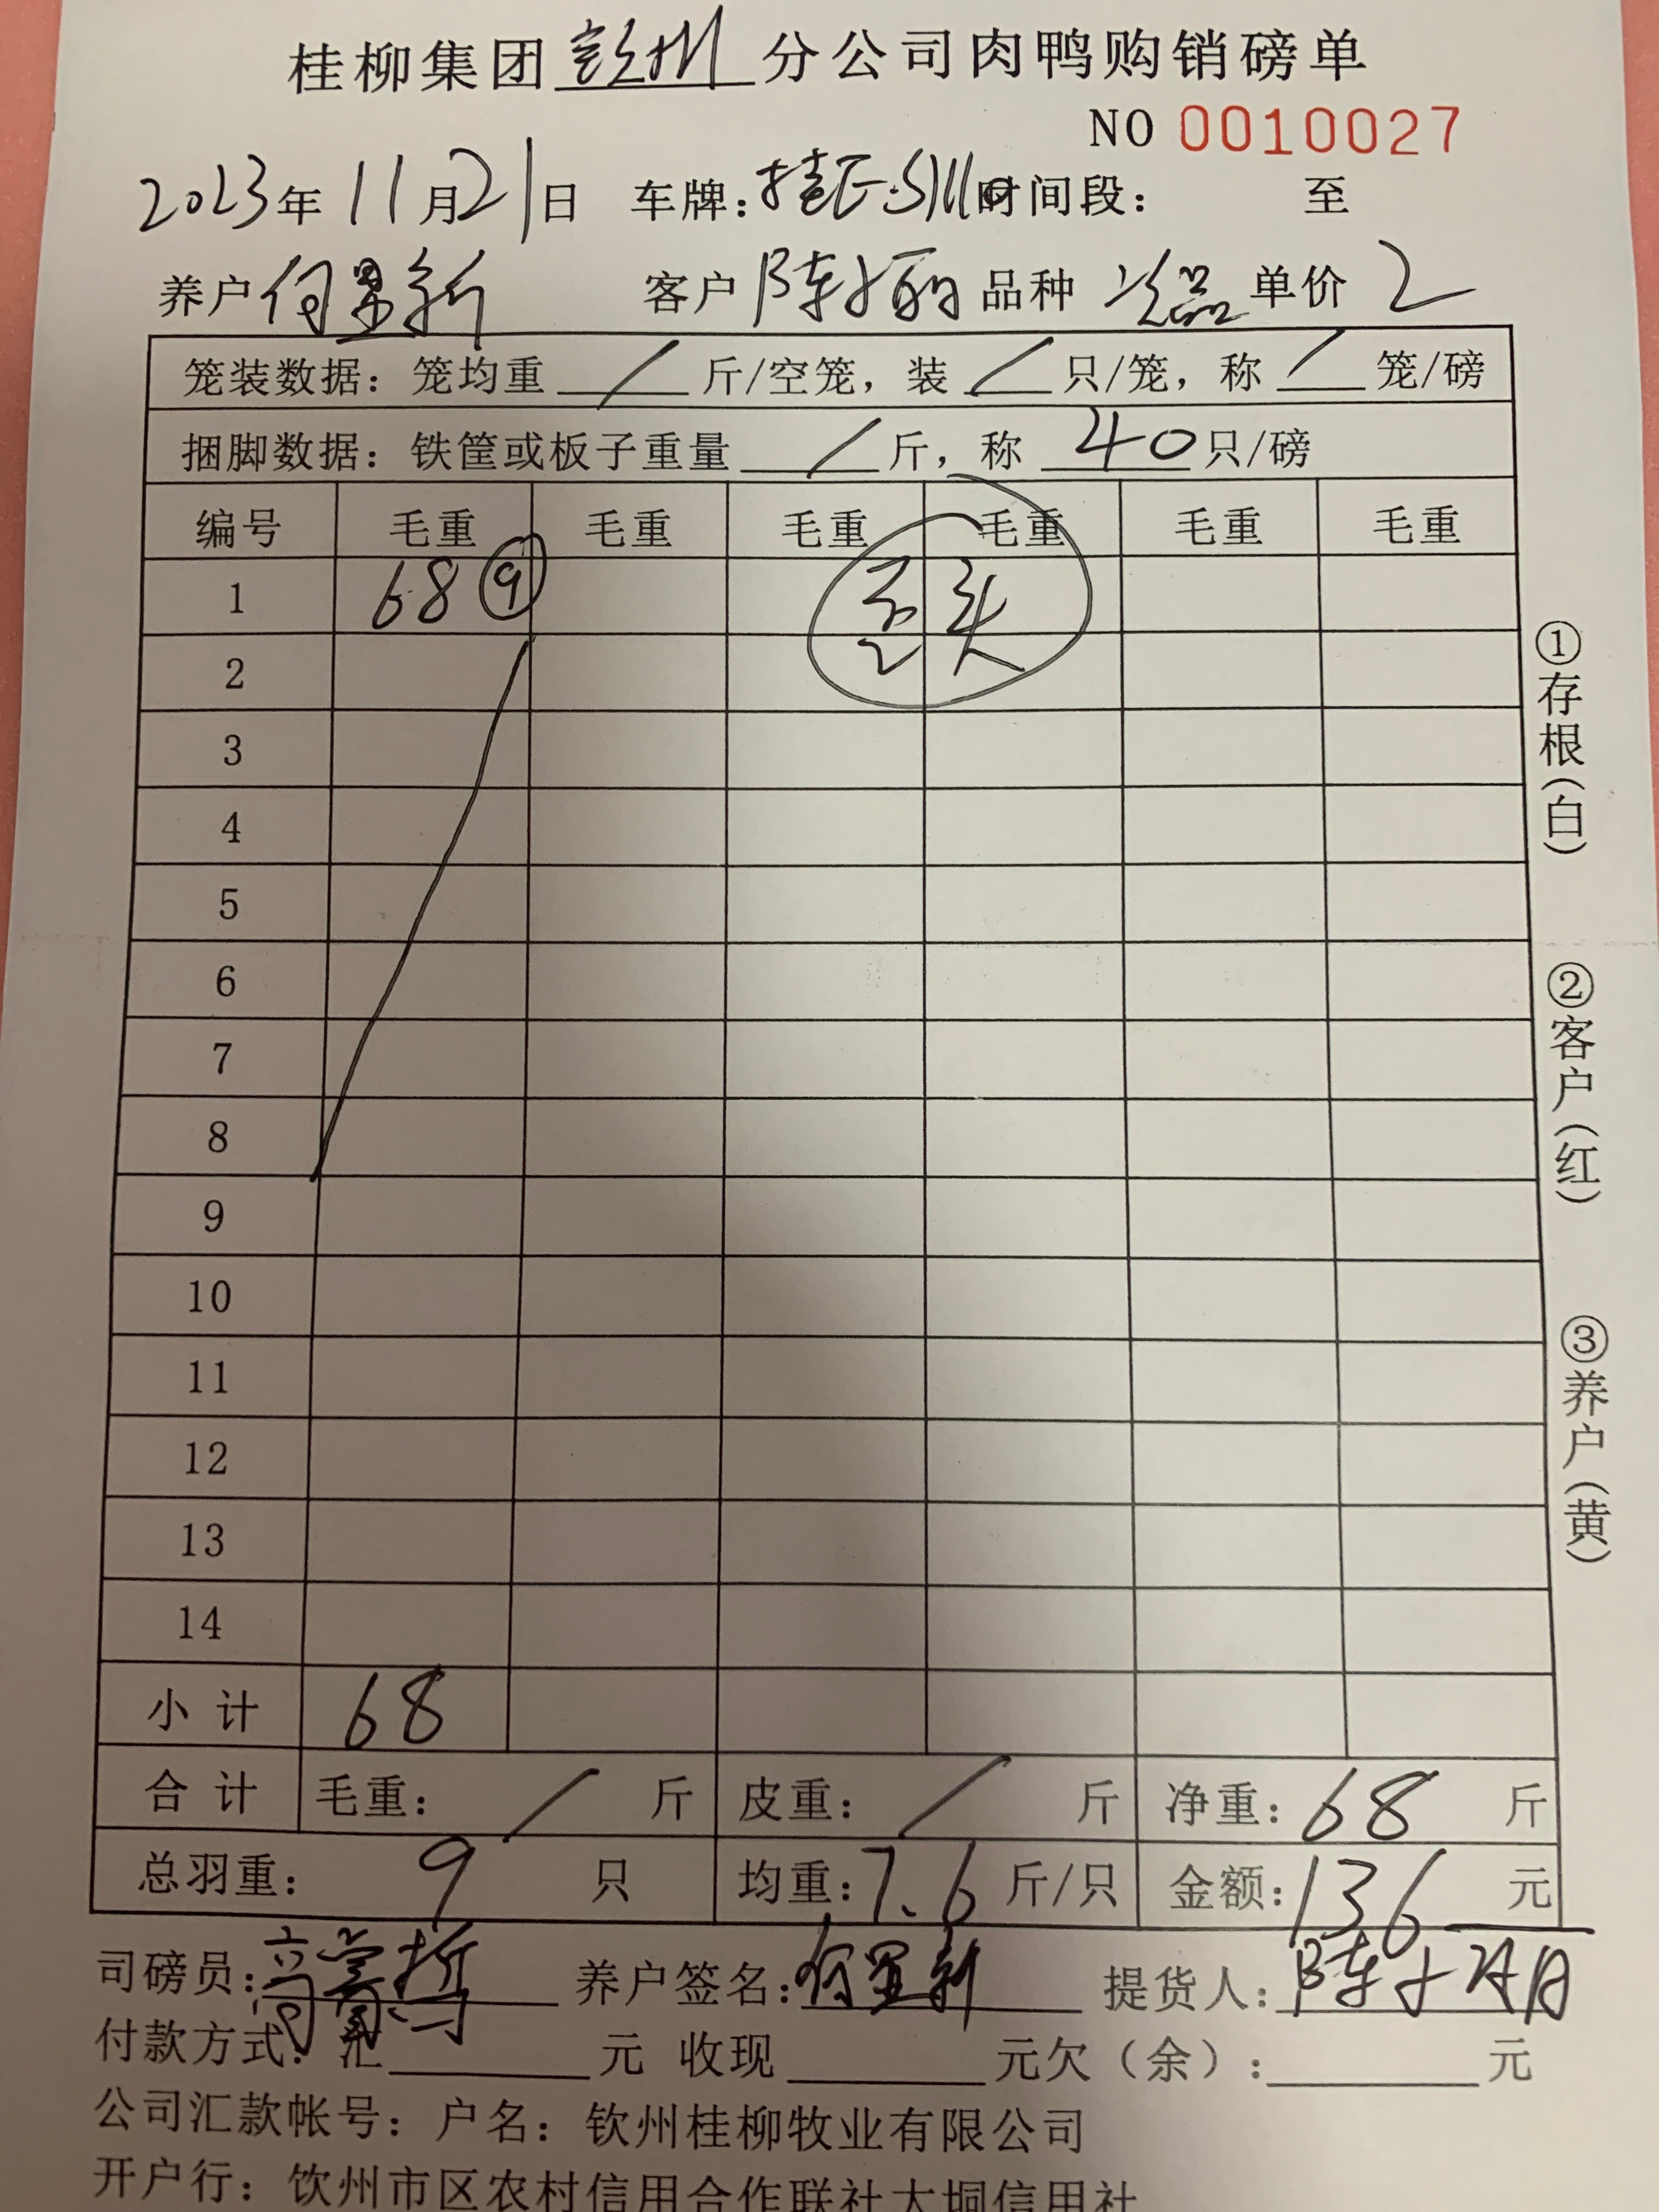 桂柳集团彭州分公司肉鸭购销磅单
NO 0010027
2023年11月21日 车牌: 时间段: 至
养户何景新 客户陈小丽 品种次品 单价2
笼装数据: 笼均重 / 斤/空笼, 装 / 只/笼, 称 / 笼/磅
捆脚数据: 铁筐或板子重量 / 斤, 称 40 只/磅
编号 毛重 毛重 毛重 毛重 毛重 毛重
1 68 ⑨ 歪头
2
3
4
5
6
7
8
9
10
11
12
13
14
小 计 68
合 计 毛重: / 斤 皮重: / 斤 净重: 68 斤
总羽重: 9 只 均重: 7.6 斤/只 金额: 136 元
司磅员: 养户签名: 何景新 提货人: 陈
付款方式: 汇 元 收现 元欠（余）: 元
公司汇款帐号: 户名: 钦州桂柳牧业有限公司
开户行: 钦州市区农村信用合作联社大垌信用社
①存根(白)
②客户(红)
③养户(黄)